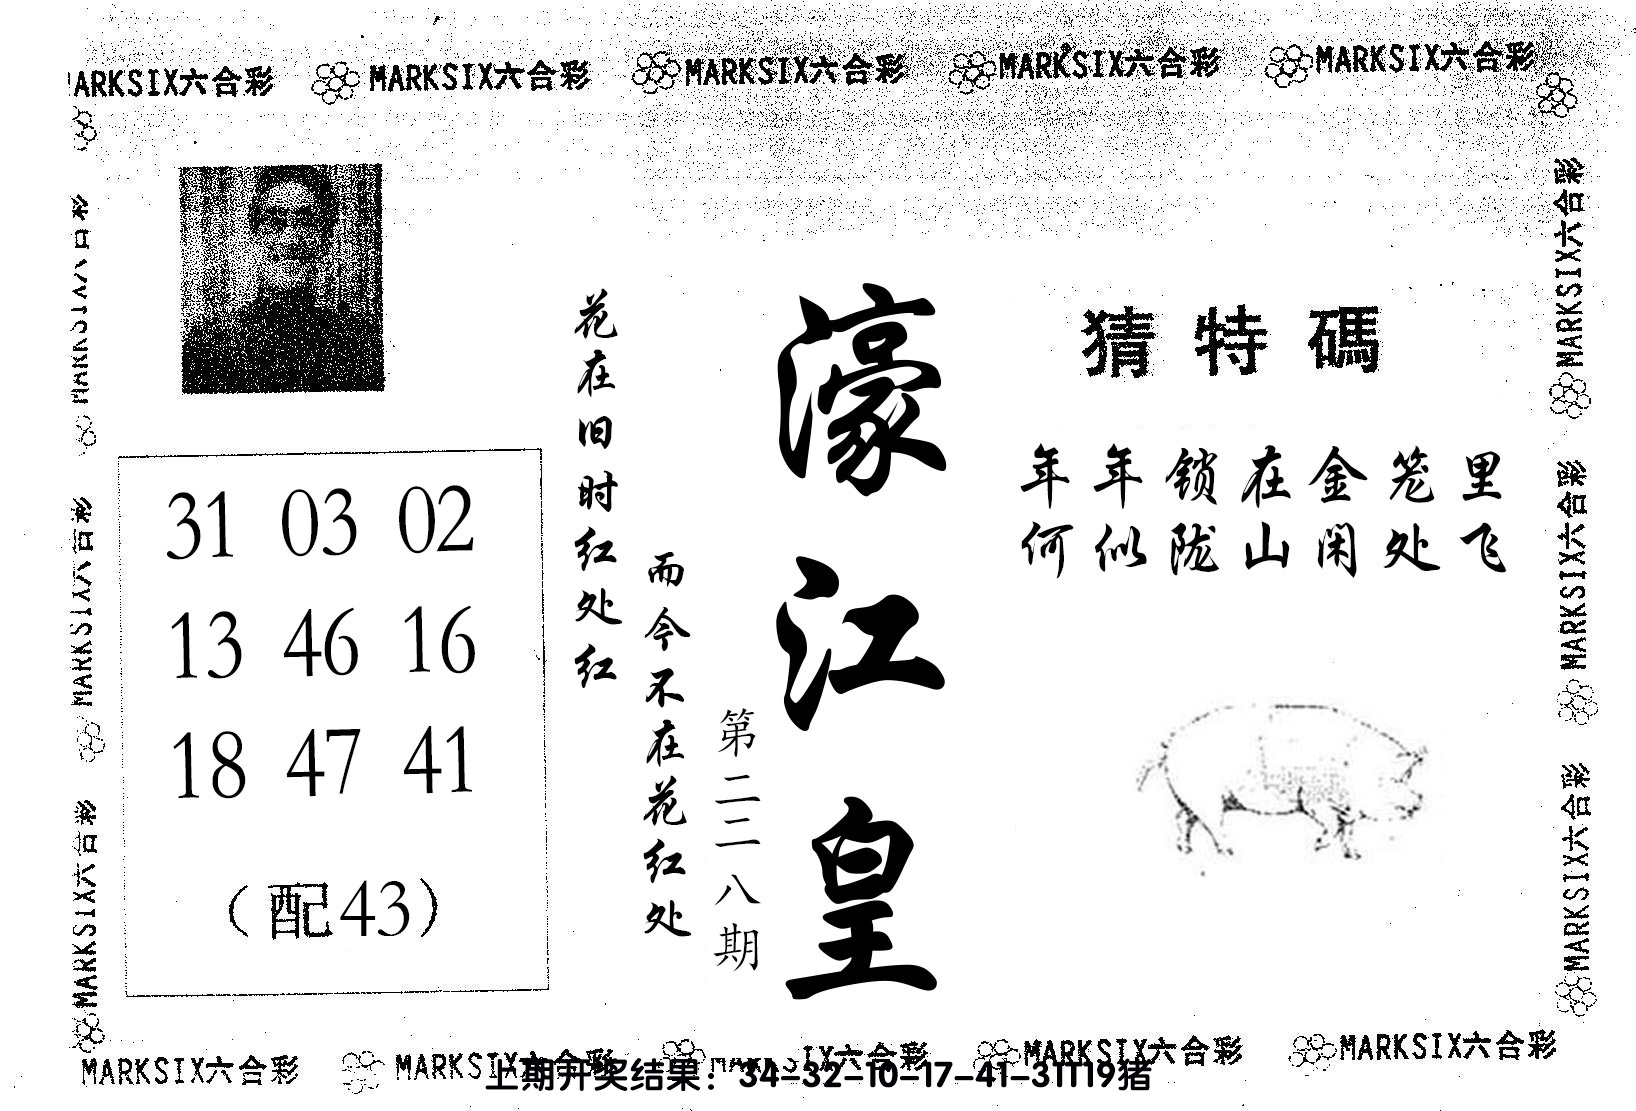 MARKSIX六合彩 MARKSIX六合彩 MARKSIX六合彩 MARKSIX六合彩 MARKSIX六合彩
猜特碼
年年锁在金笼里
何似陇山闲处飞
濠江皇
第二二八期
花在旧时红处红
而今不在花红处
31 03 02
13 46 16
18 47 41
(配43)
MARKSIX六合彩
MARKSIX六合彩
MARKSIX六合彩
MARKSIX六合彩
MARKSIX六合彩
MARKSIX六合彩
MARKSIX六合彩 MARKSIX六合彩 MARKSIX六合彩 MARKSIX六合彩
上期开奖结果：34-32-10-17-41-31T19猪